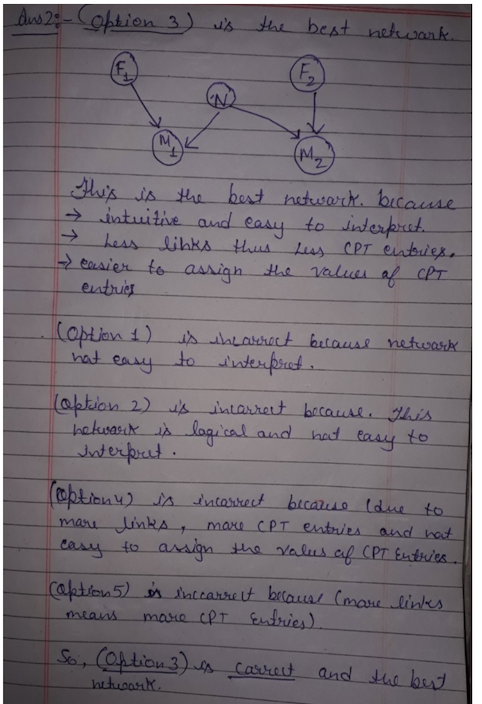 Ans2:- (Option 3) is the best network.
F1 F2
N
M1 M2
This is the best network. because
→ intuitive and easy to interpret.
→ Less links thus less CPT entries.
→ easier to assign the values of CPT
entries
(Option 1) is incorrect because network
not easy to interpret.
(Option 2) is incorrect because. This
network is logical and not easy to
interpret.
(Option 4) is incorrect because (due to
more links, more CPT entries and not
easy to assign the values of CPT Entries.
(Option 5) is inccorrect because (more links
means more CPT Entries).
So, (Option 3) is correct and the best
network.